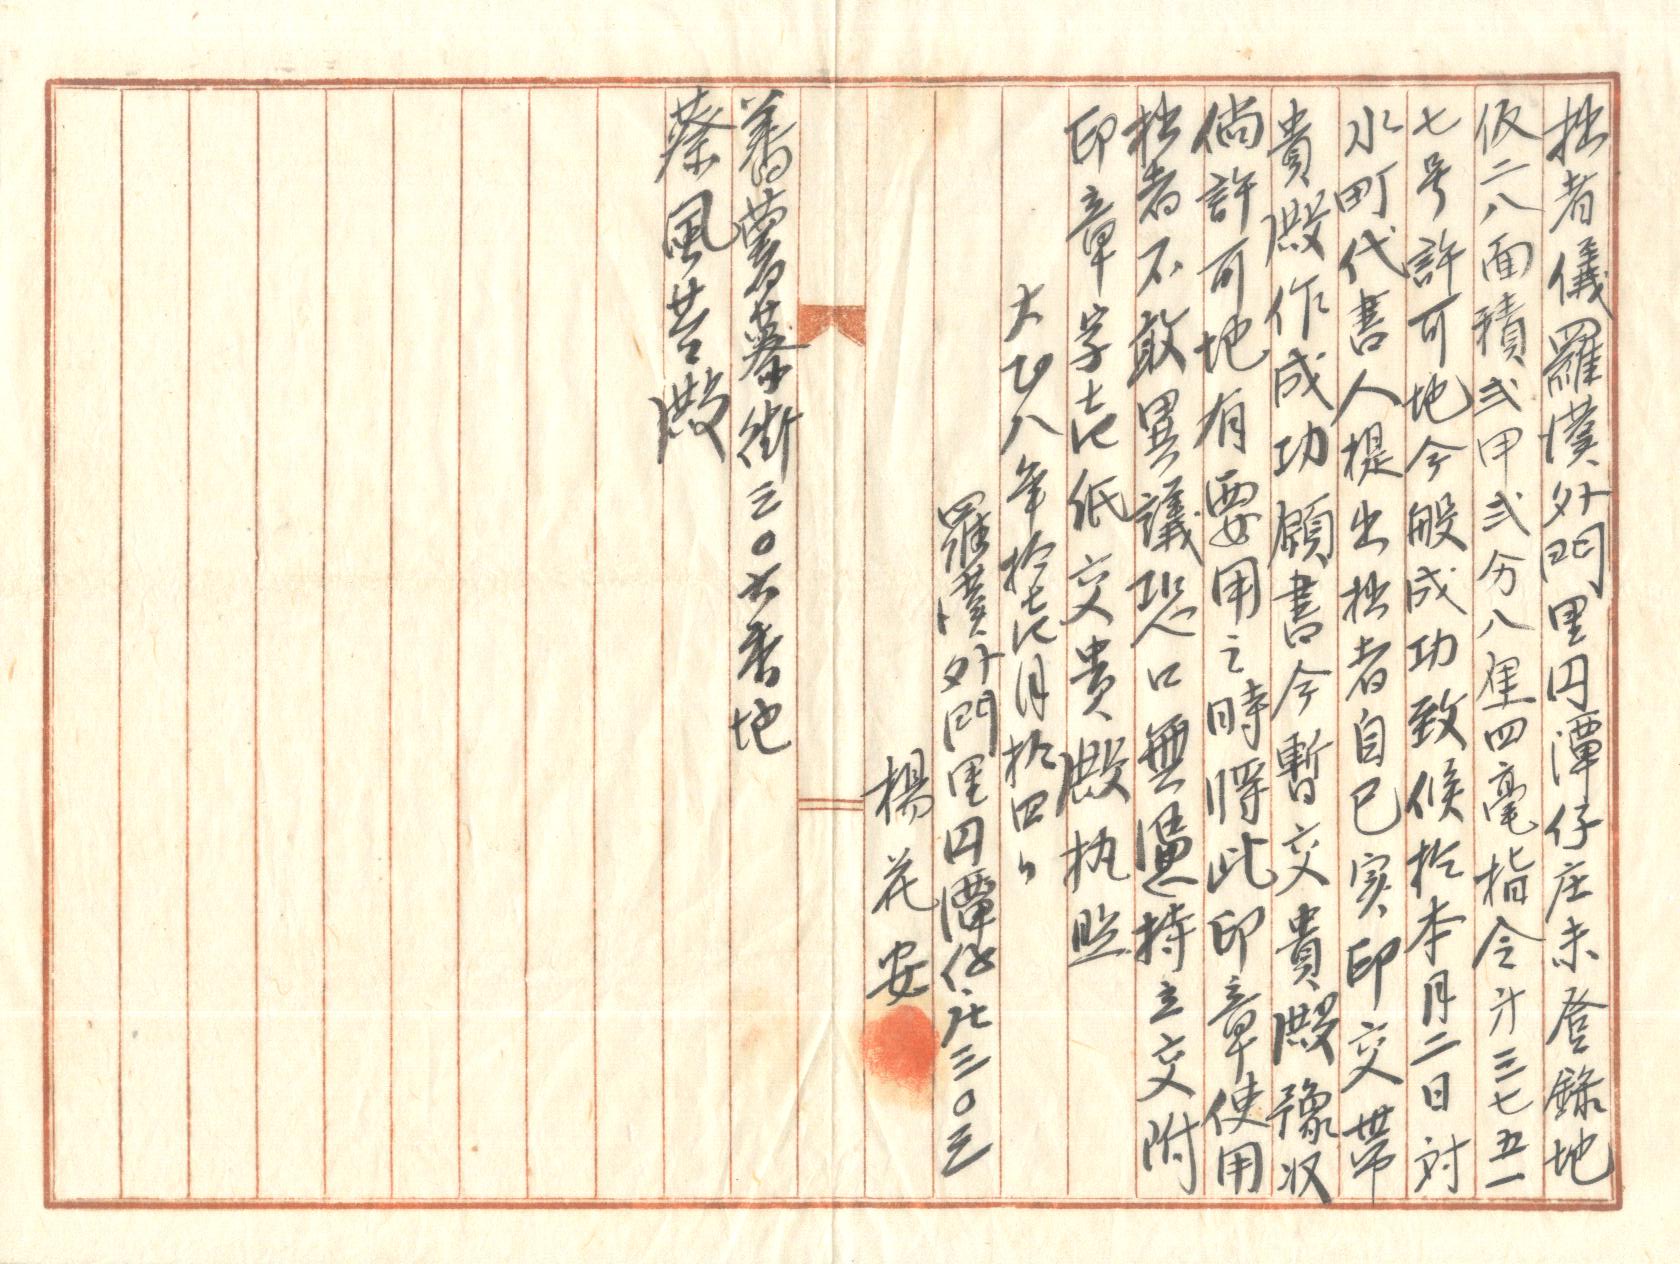 拙者儀羅漢外門里円潭仔庄未登録地
仮二八面積弍甲弍分八厘四毫指令才三七五一
七号許可地今般成功致候於本月二日対
水町代書人提出拙者自己実印交帯
貴殿作成功願書今暫交貴殿豫収
倘許可地有要用之時將此印章使用
拙者不敢異議恐口無憑特立交附
印章字壱紙交貴殿执照
大正八年拾壱月拾四日
羅漢外門里円潭仔庄三〇三
楊花安
旧蕃薯藔街三〇六番地
蔡風苦殿